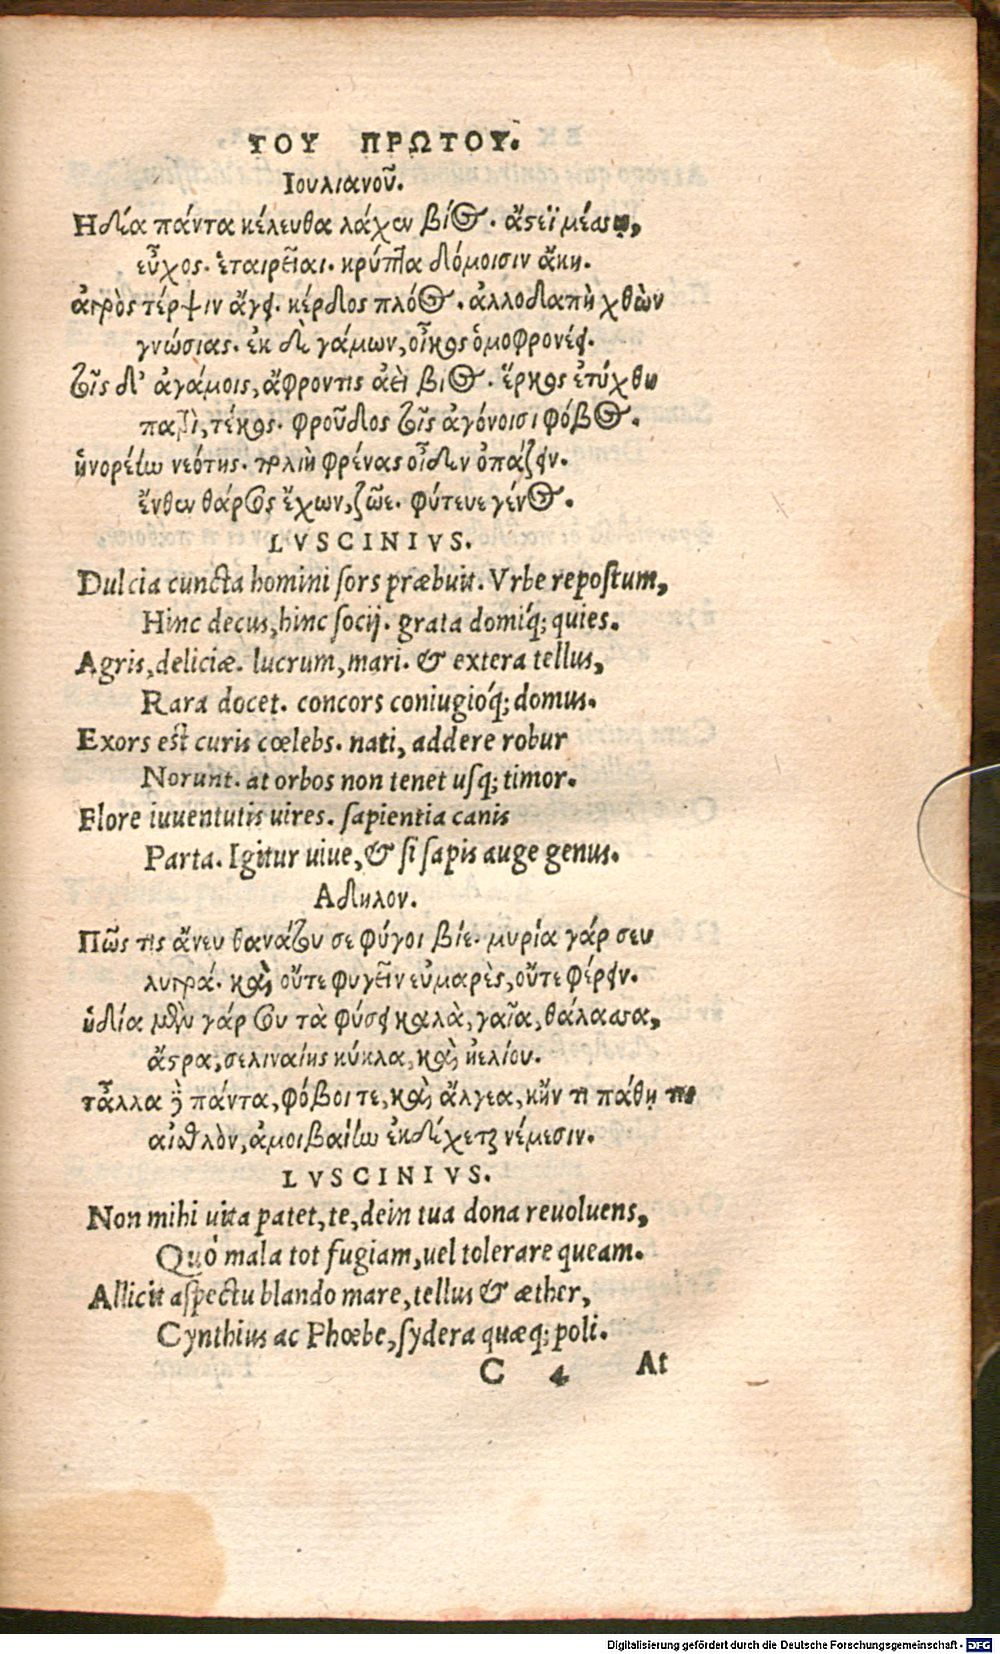 ΤΟΥ ΠΡΩΤΟΥ.
Ιουλιανοῦ.
Ηδέα πάντα κέλευθα λάχεν βίος. ἄστεϊ μέσσῳ,
εὖχος. ἑταιρεῖαι. κρύπτα δόμοισιν ἄχη.
ἀγρὸς τέρψιν ἄγει. κέρδος πλόος. ἀλλοδαπὴ χθὼν
γνώσιας. ἐκ δὲ γάμων, οἶκος ὁμοφρονέει.
τοῖς δ' ἀγάμοις, ἄφροντις ἀεὶ βίος. ἕρκος ἐτύχθη
πατρὶ, τέκος. φροῦδος τοῖς ἀγόνοισι φόβος.
ἠνορέην νεότης. πολιὴ φρένας οἶδεν ὀπάζειν.
ἔνθεν θάρσος ἔχων, ζῶε. φύτευε γένος.
LVSCINIVS.
Dulcia cuncta homini sors præbuit. Vrbe repostum,
Hinc decus, hinc socij. grata domíq; quies.
Agris, deliciæ. lucrum, mari. & extera tellus,
Rara docet. concors coniugióq; domus.
Exors est curis cœlebs. nati, addere robur
Norunt. at orbos non tenet usq; timor.
Flore iuuentutis uires. sapientia canis
Parta. Igitur uiue, & si sapis auge genus.
Αδηλον.
Πῶς τις ἄνευ θανάτου σε φύγοι βίε. μυρία γάρ σευ
λυγρά. καὶ οὔτε φυγεῖν εὐμαρὲς, οὔτε φέρειν.
ἡδέα μὲν γάρ σου τὰ φύσει καλὰ, γαῖα, θάλασσα,
ἄστρα, σεληναίης κύκλα, καὶ ἠελίου.
τἄλλα δὲ πάντα, φόβοι τε, καὶ ἄλγεα, κἤν τι πάθῃ τις
αἰσθλὸν, ἀμοιβαίην ἐκδέχεται νέμεσιν.
LVSCINIVS.
Non mihi uita patet, te, dein tua dona reuoluens,
Quò mala tot fugiam, uel tolerare queam.
Allicit aspectu blando mare, tellus & æther,
Cynthius ac Phœbe, sydera quæq; poli.
C 4 At
Digitalisierung gefördert durch die Deutsche Forschungsgemeinschaft - DFG